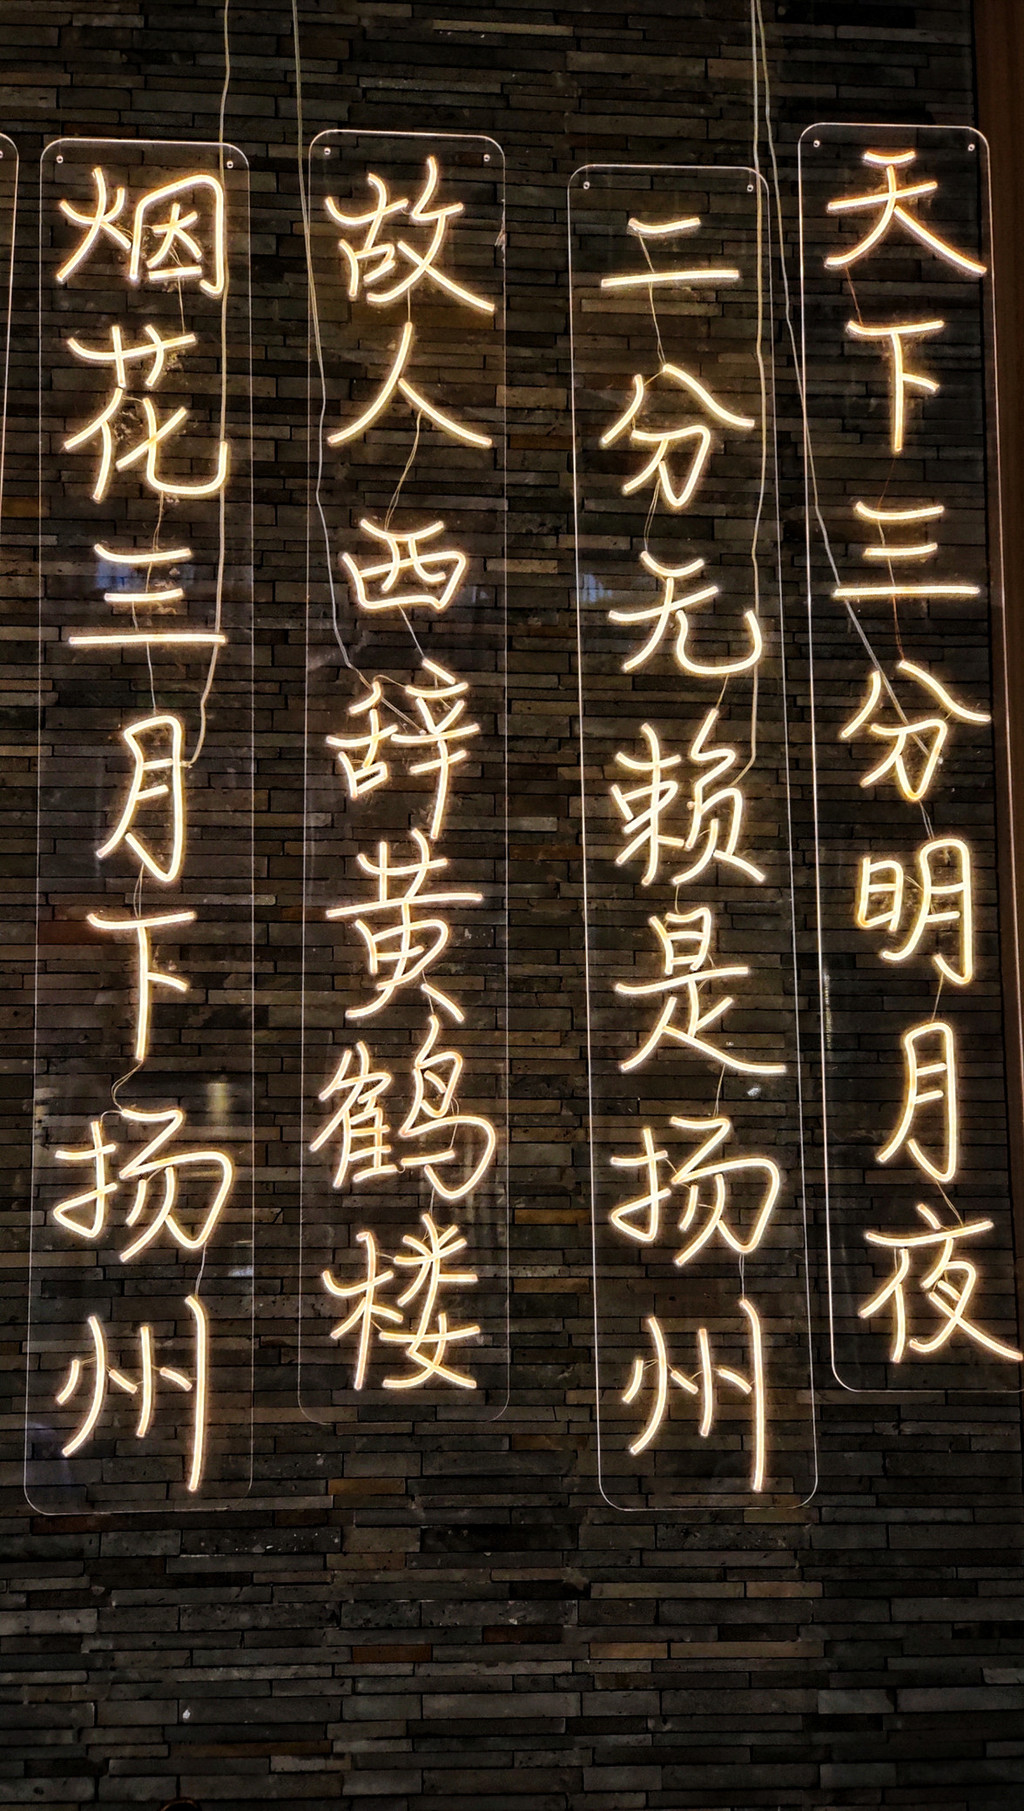 天下三分明月夜
二分无赖是扬州
故人西辞黄鹤楼
烟花三月下扬州